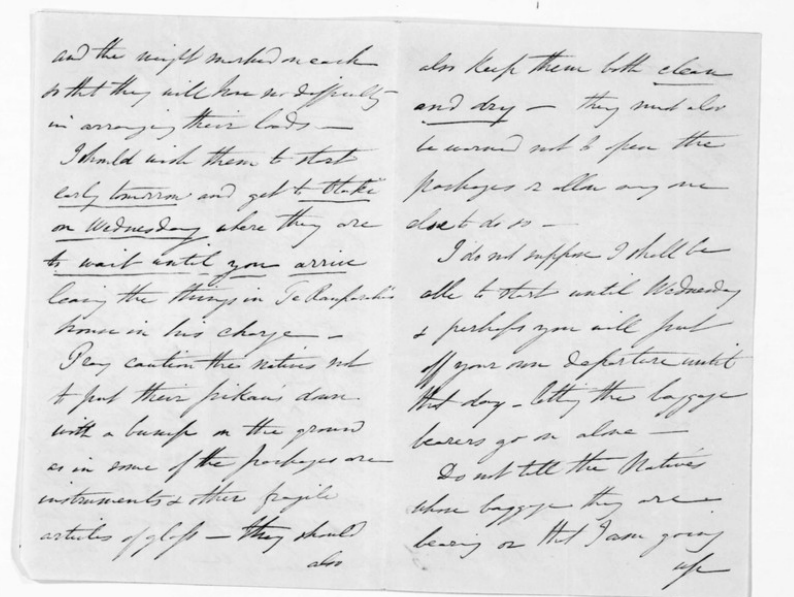 and the weight marked on each
so that they will have no difficulty
in arranging their loads —
I should wish them to start
early tomorrow and get to Otaki
on Wednesday where they are
to wait until you arrive
leaving the things in Te Rauparaha's
house in his charge —
Pray caution the natives not
to put their pikaus down
with a bump on the ground
as in some of the packages are
instruments & other fragile
articles of glass — they should
also
also keep them both clean
and dry — they must also
be warned not to open the
packages or allow any one
else to do so —
I do not suppose I shall be
able to start until Wednesday
& perhaps you will put
off your own departure until
that day — letting the baggage
bearers go on alone —
Do not tell the Natives
whose baggage they are
bearing or that I am going
up